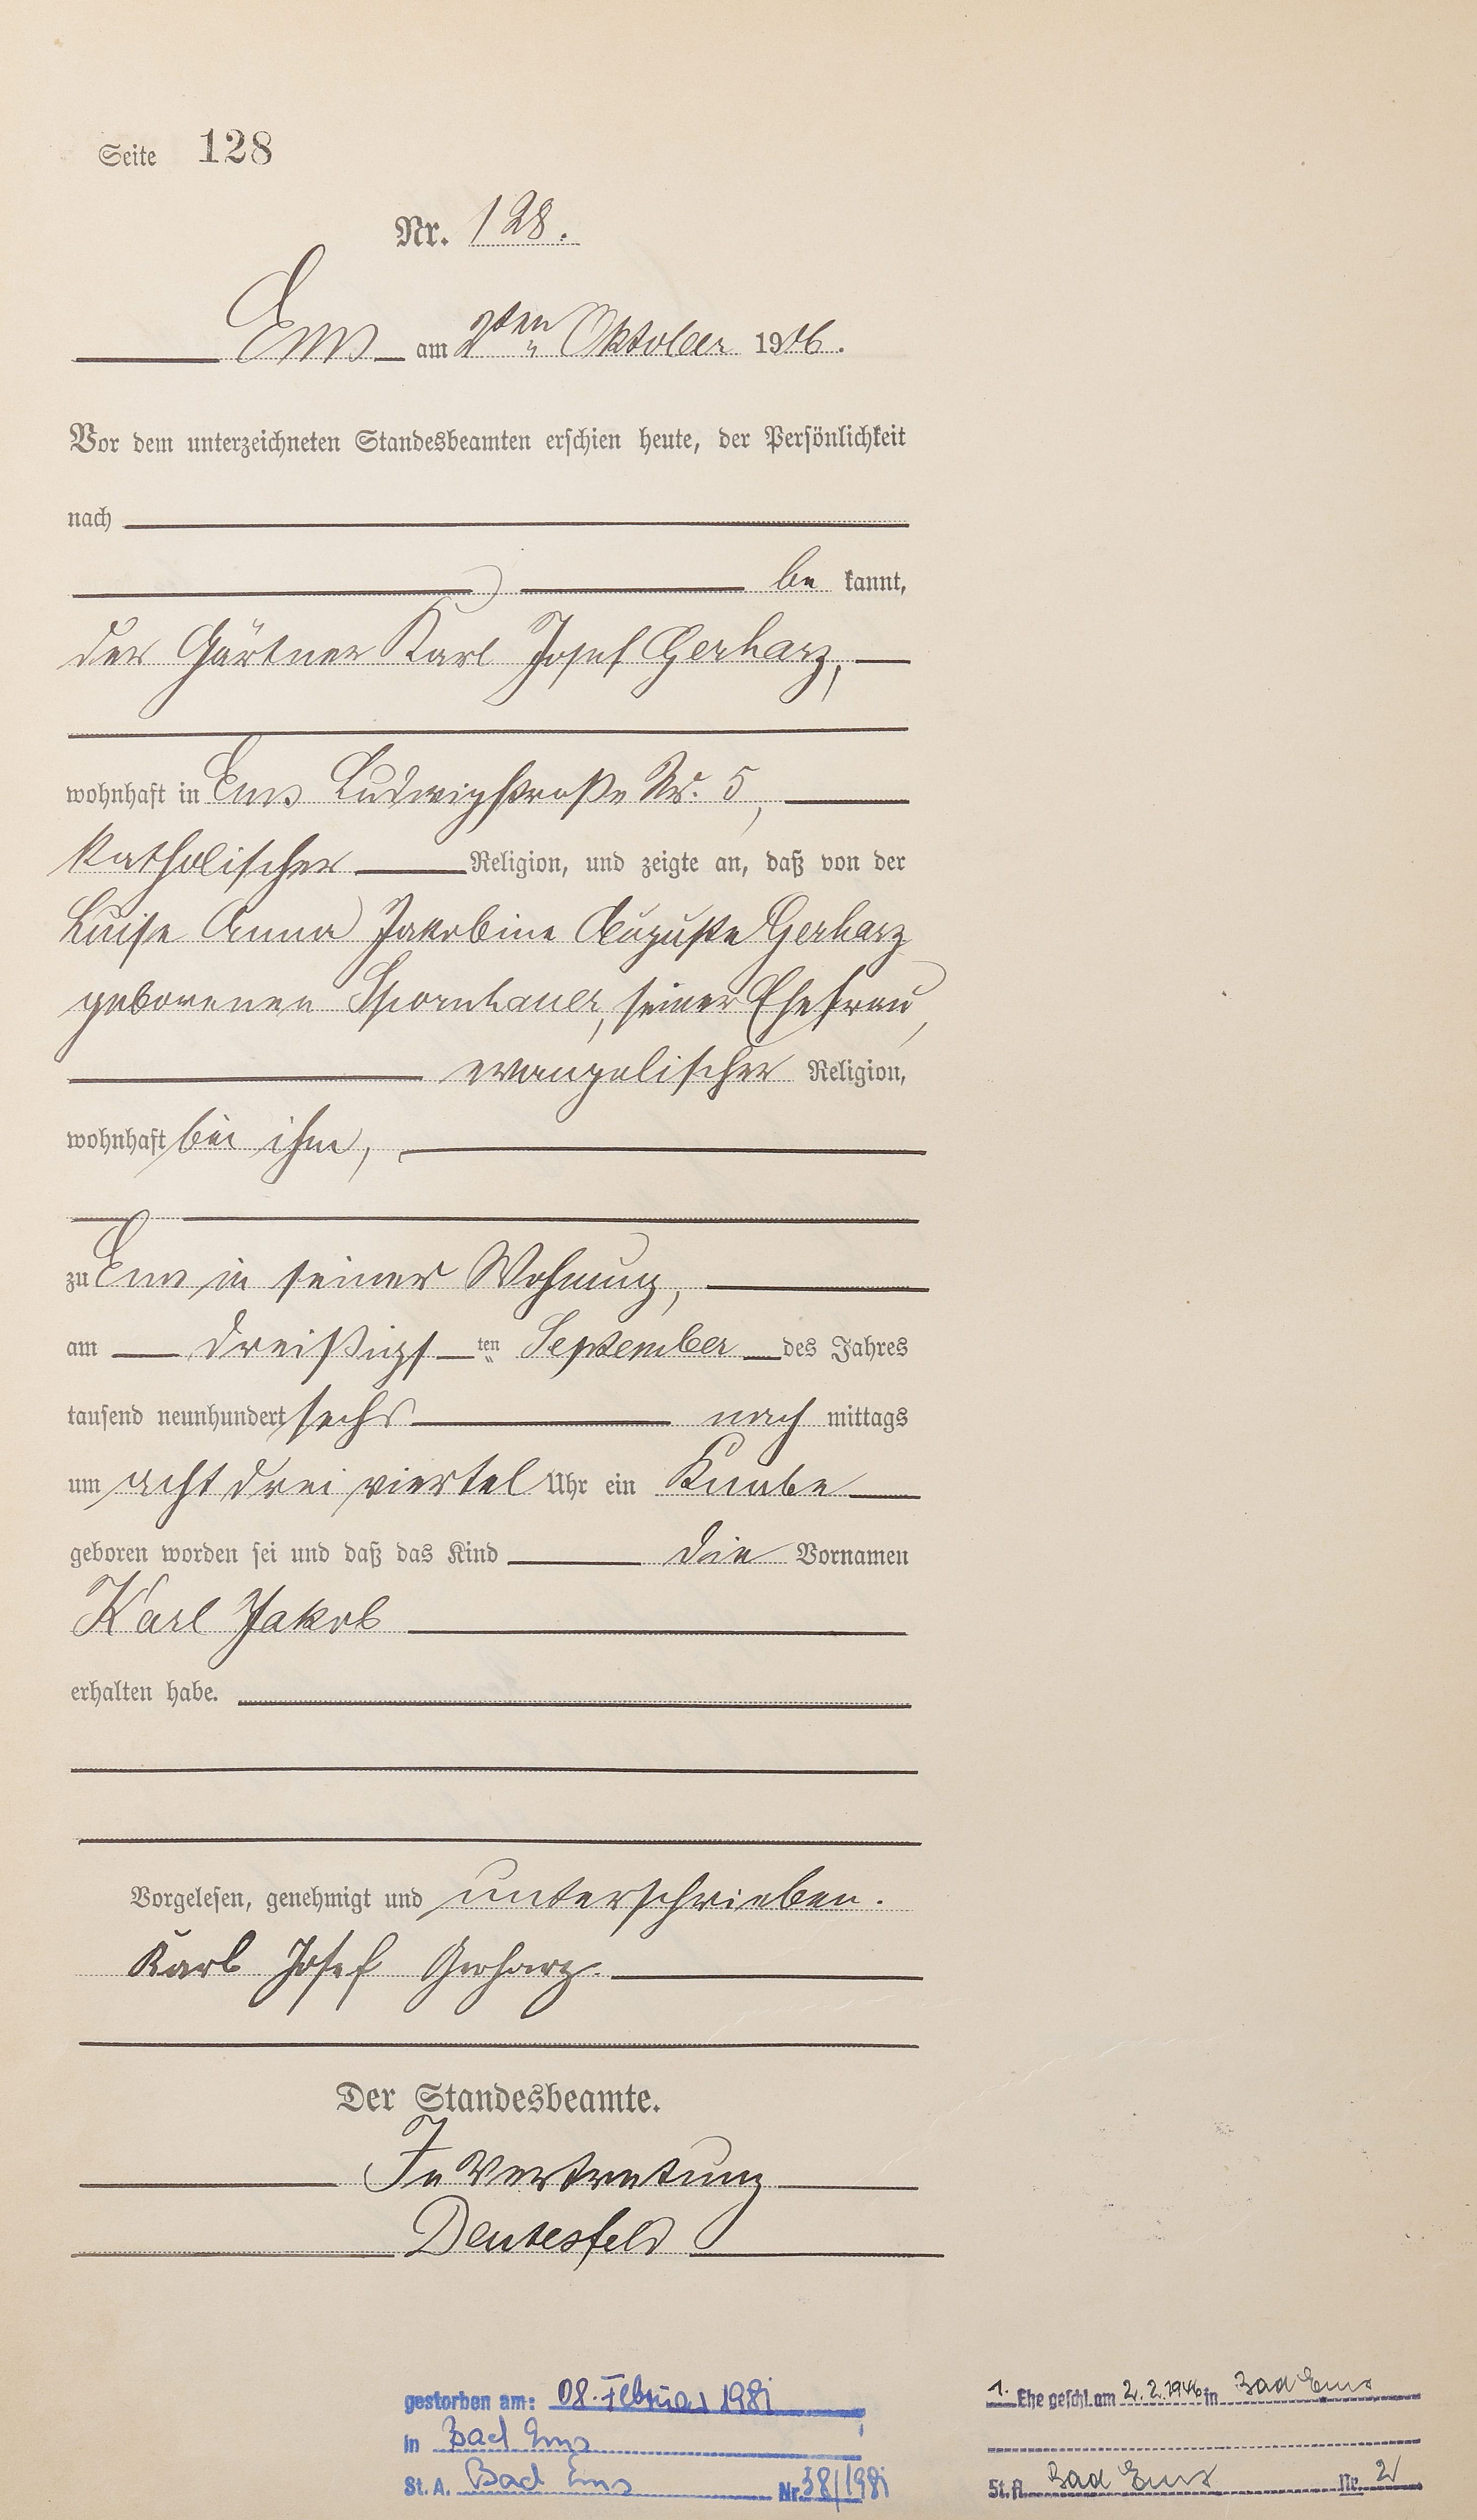 Seite 128
Nr. 128.
Ems am 2ten Oktober 1906.
Vor dem unterzeichneten Standesbeamten erschien heute, der Persönlichkeit
nach
be kannt,
der Gärtner Karl Josef Gerharz,
wohnhaft in Ems Ludwigstraße Nr. 5,
katholischer Religion, und zeigte an, daß von der
Luise Anna Jakobine Auguste Gerharz
geborenen Spornhauer, seiner Ehefrau,
evangelischer Religion,
wohnhaft bei ihm,
zu Ems in seiner Wohnung,
am dreißigsten September des Jahres
tausend neunhundert sechs nach mittags
um acht drei viertel Uhr ein Knabe
geboren worden sei und daß das Kind die Vornamen
Karl Jakob
erhalten habe.
Vorgelesen, genehmigt und unterschrieben.
Karl Josef Gerharz.
Der Standesbeamte.
In Vertretung
Deutesfeld
gestorben am: 08. Februar 1981
in Bad Ems
St. A. Bad Ems Nr. 38/1981
1. Ehe geschl. am 2.2.1946 in Bad Ems
St. A. Bad Ems Nr. 2